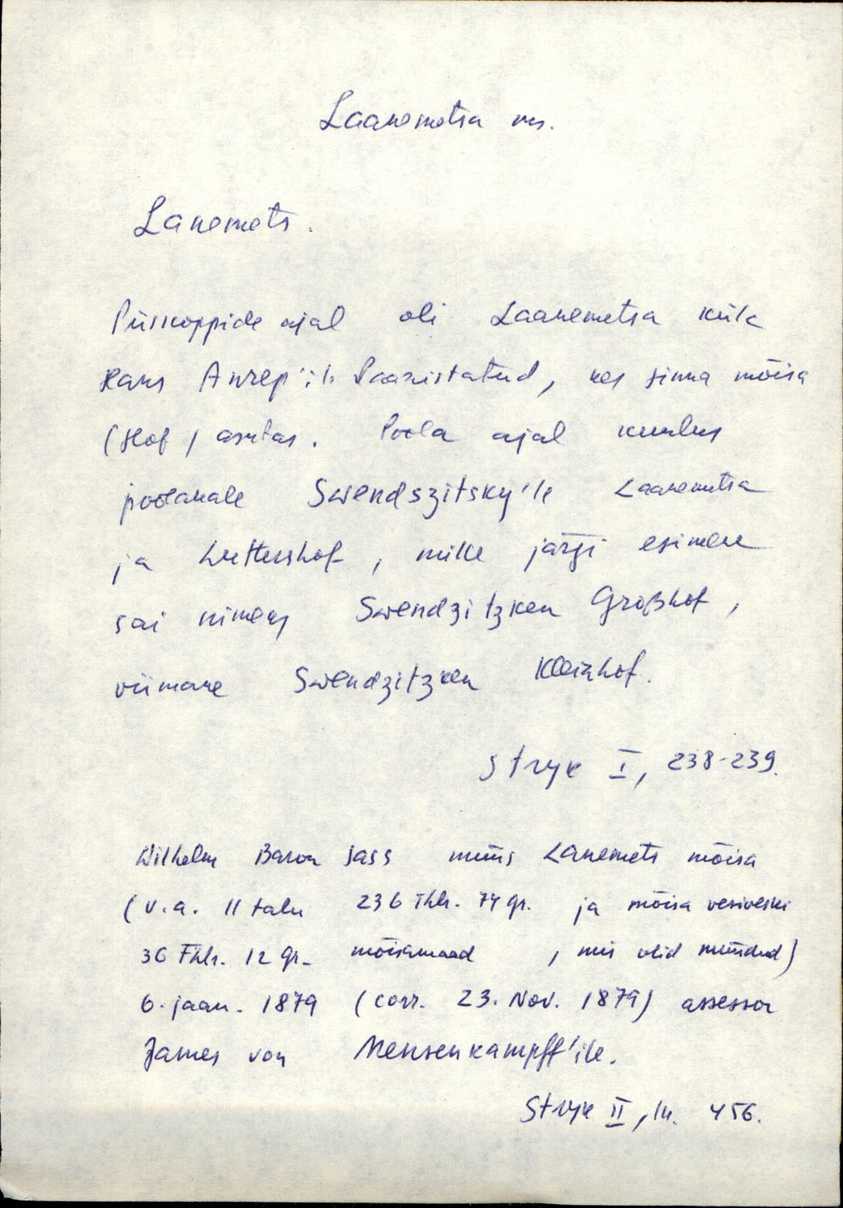 Laanemetsa ms.
Lanemets.
Piiskoppide ajal oli Laanemetsa küla
Hans Anrep'ile läänistatud, kes sinna mõisa
(Hof) asutas. Poola ajal kuulus
poolakale Swendszitsky'le Laanemetsa
ja , mille järgi esimene
sai nimeks Swendzitzken Großhof,
viimane Swendzitzken Kleinhof.
Stryk I, 238-239.
Wilhelm Baron Sass müüs Lanemets mõisa
(v.a. 11 talu 236 Thlr. 74 gr. ja mõisa vesiveski
36 Thlr. 12 gr. mõisamaad , mis olid müüdud)
6. jaan. 1879 (corr. 23. Nov. 1879) assessor
James von Mensenkampff'ile.
Stryk II, lk. 456.